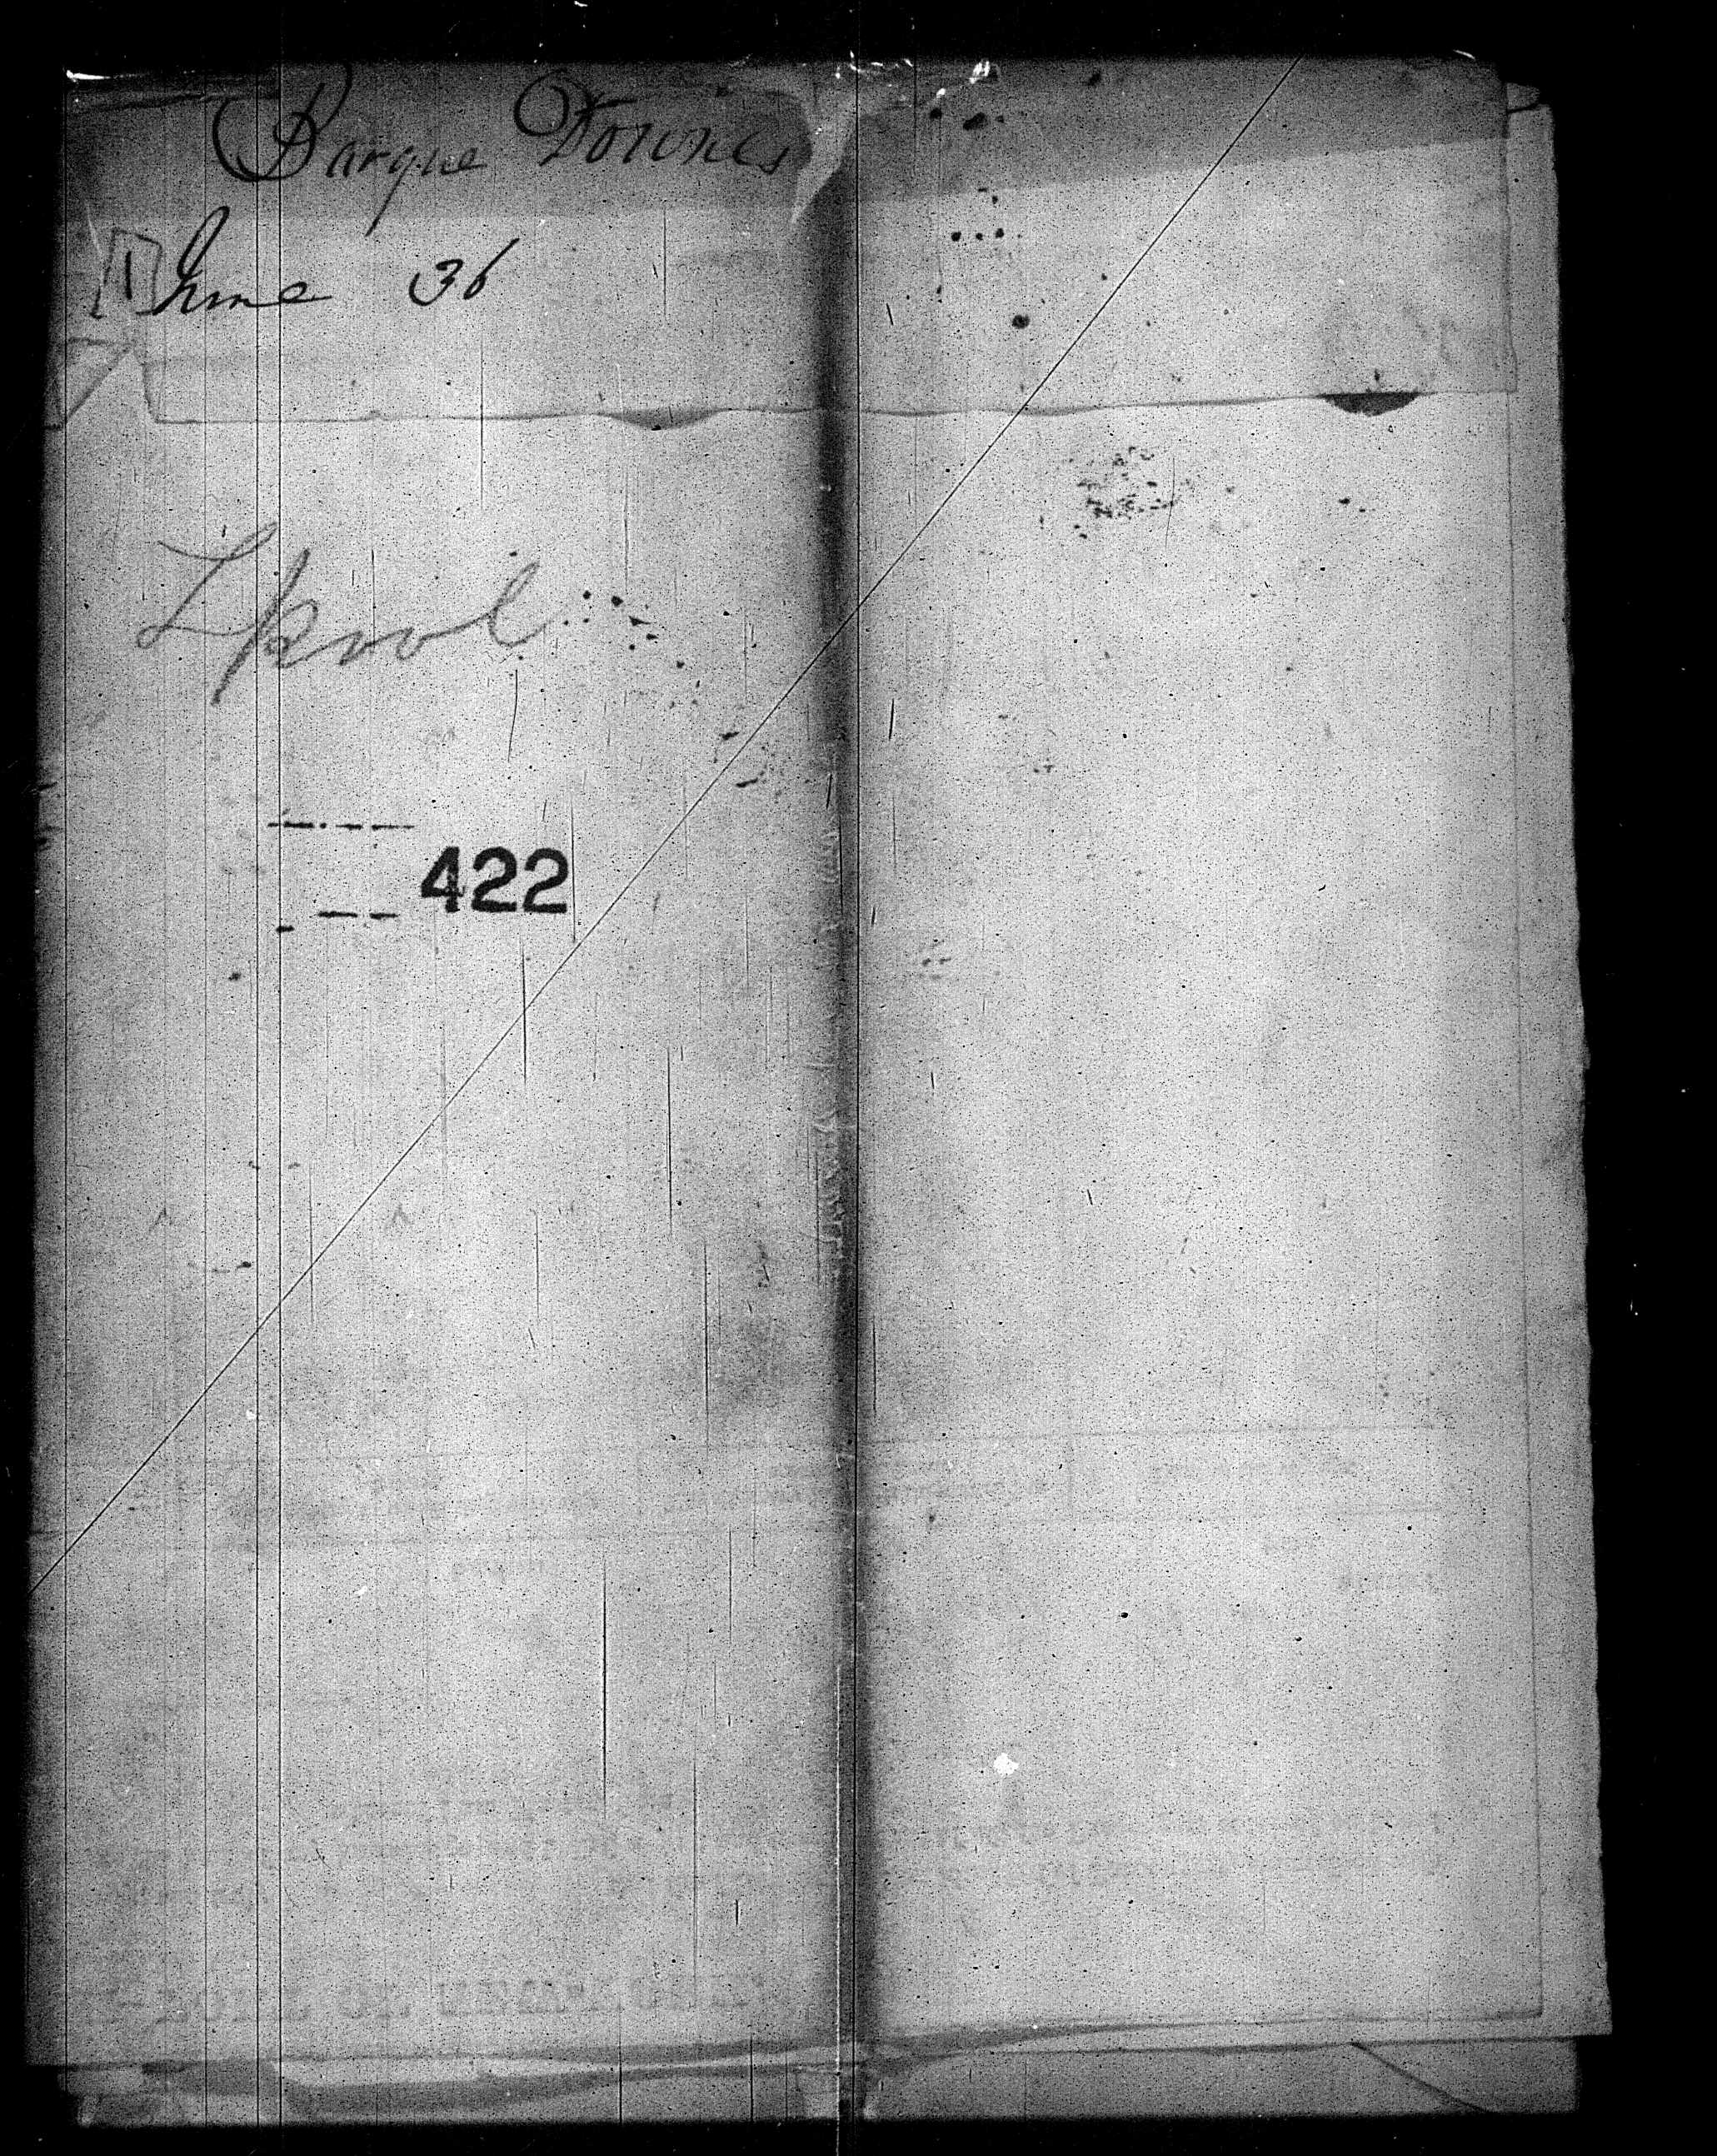 Barque Dorines
June 36
Lpool
422